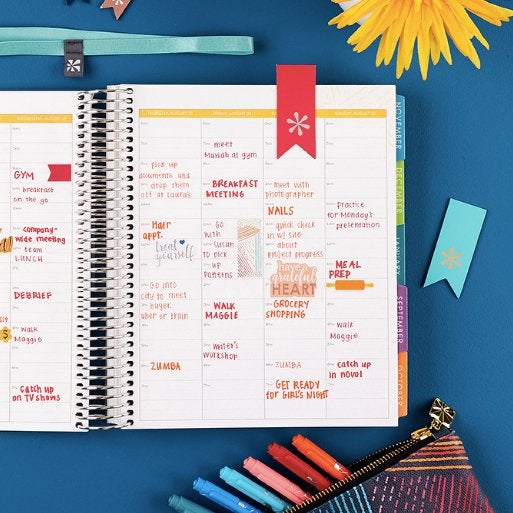 GYM
breakfast
on the go
company-
wide meeting
team
LUNCH
DEBRIEF
$
walk
Maggie
catch up
on TV shows
pick up
documents and
drop them
off at Laura's
Hair
appt.
treat
yourself
Go into
city to meet
buyer.
uber or train
ZUMBA
meet
Mariah at gym
BREAKFAST
MEETING
GO
with
Susan
to pick
up
patterns
WALK
MAGGIE
writer's
workshop
meet with
photographer
NAILS
quick check
in w/ site
about
project progress
have a
grateful
HEART
GROCERY
SHOPPING
ZUMBA
GET READY
for GIRL'S NIGHT
practice
for Monday's
presentation
MEAL
PREP
walk
Maggie
catch up
in novel
NOVEMBER
DECEMBER
JANUARY
SEPTEMBER
OCTOBER